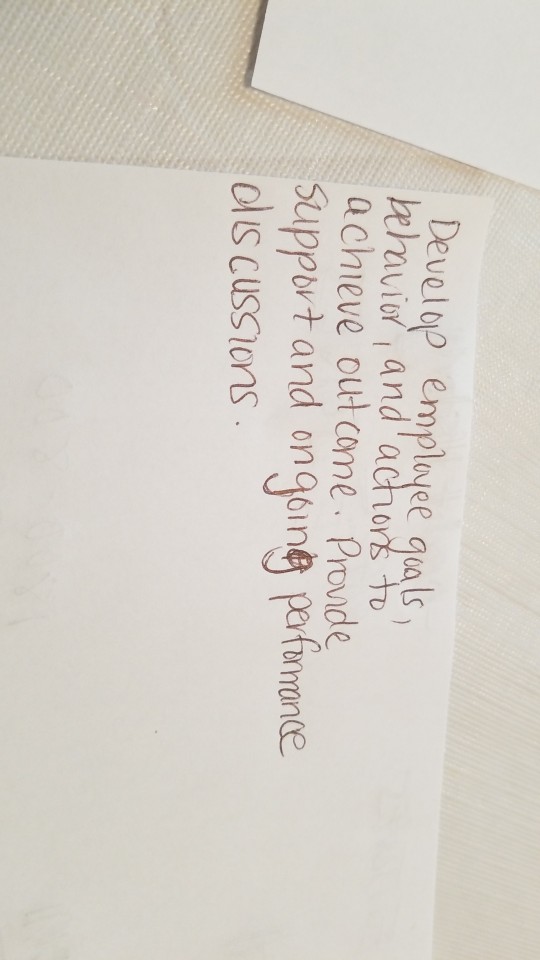 Develop employee goals,
behavior, and actions to
achieve outcome. Provide
support and ongoing performance
discussions.